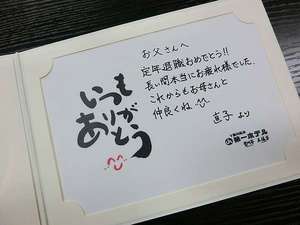 いつも
ありがとう
お父さんへ
定年退職おめでとう!!
長い間本当にお疲れ様でした。
これからもお母さんと
仲良くね
直子より
第一ホテル